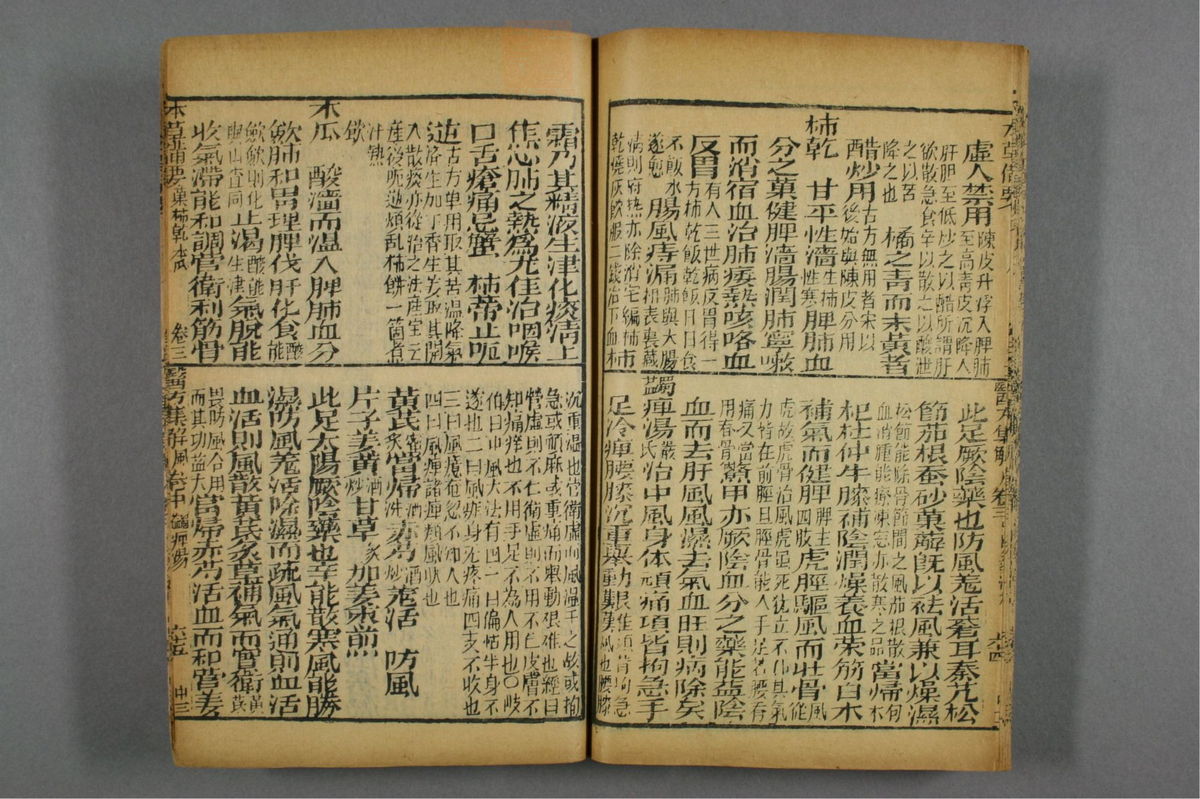 虛人禁用陳皮升浮入脾肺
治高青皮沉降入
肝胆至低炒之以醋所謂肝
欲散急食辛以散之以酸泄
之以苦
降之也 橘之青而未黃者
醋炒用古方無用者宋以
後始與陳皮分用
柿乾 甘平性濇生柿性寒脾肺血
分之菓健脾濇腸潤肺寧嗽
而消宿血治肺痿熱咳咯血
反胃有人三世病反胃得一
方柿乾飯乾飯日日食
不飯水
遂愈 腸風痔漏肺與大腸
相表裏臟
清則腑熱亦除 編柿
乾燒灰飲服二錢治下血柿
此足厥陰藥也防風羌活蒼耳秦艽松
節茄根蚕砂萆薢既以祛風兼以燥濕
松節能除骨節間之風茄根散
血消腫能療凍瘡亦散寒之品 當歸枸
杞杜仲牛膝補陰潤燥養血榮筋白朮
補氣而健脾脾主四肢虎脛驅風而壯骨風從
虎故虎骨治風虎雖死猶立不仆其氣
力皆在前脛且脛骨能入手足若腰脊
痛又當
用脊骨鱉甲亦厥陰血分之藥能益陰
血而去肝風風濕去氣血旺則病除矣
蠲痺湯嚴氏治中風身体頑痛項背拘急手
足冷痺腰膝沉重舉動艱難
霜乃其精液生津化痰清上
焦心肺之熱為尤佳治咽喉
口舌瘡痛忌蟹 柿蒂止呃
逆古方單用取其苦溫降氣
濟生加丁香生姜取其開
入散痰亦從治之法產宝云
產後呃逆煩乱柿餅一箇煮
汁熱
飲
木瓜 酸濇而溫入脾肺血分
斂肺和胃理脾伐肝化食酸能
斂斂則化
與山查同止渴酸能生津氣脫能
收氣滯能和調營衛利筋骨
本草備要 菓柿乾木瓜 卷三
沉重濕也營衛虛而風濕干之故或拘
急或頑麻或重痛而舉動艱难也經曰
營虛則不仁衛虛則不用不仁皮膚不
知痛痒也不用手足不為人用也〇岐
伯曰中風大法有四一曰偏枯半身不
遂也二曰風痱身无疼痛四支不收也
三曰風懿奄忽不知人也
四曰風痺諸痺類風狀也
黃芪蜜炙當歸酒洗赤芍酒炒羌活 防風
片子姜黃酒炒甘草炙 加姜棗煎
此足太陽厥陰藥也辛能散寒風能勝
濕防風羌活除濕而疏風氣通則血活
血活則風散黃芪炙草補氣而實衛黃芪
畏防風合用
而其功益大 當歸赤芍活血而和營姜
醫方集解 風 卷中 蠲痺湯 六五 中三